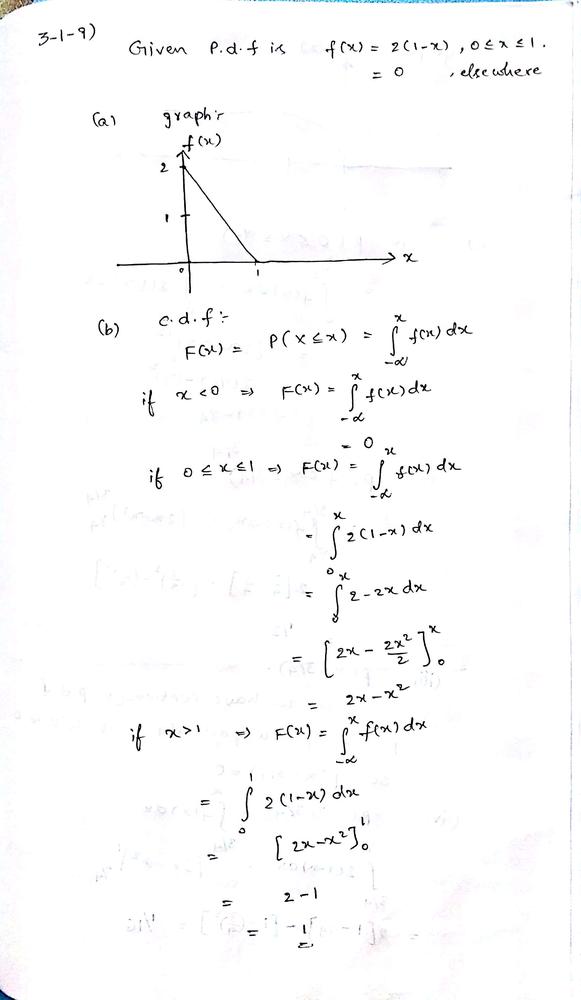 3-1-9)
Given P.d.f is f(x) = 2(1-x) , 0 ≤ x ≤ 1.
= 0 , elsewhere
(a) graph:-
f(x)
2
1
0 1 x
(b) c.d.f :-
F(x) = P(X ≤ x) = ∫_{-α}^{x} f(x) dx
if x < 0 ⇒ F(x) = ∫_{-α}^{x} f(x) dx
= 0
if 0 ≤ x ≤ 1 ⇒ F(x) = ∫_{-α}^{x} f(x) dx
= ∫_{0}^{x} 2(1-x) dx
= ∫_{0}^{x} 2-2x dx
= [2x - 2x²/2]_{0}^{x}
= 2x - x²
if x > 1 ⇒ F(x) = ∫_{-α}^{x} f(x) dx
= ∫_{0}^{1} 2(1-x) dx
= [2x-x²]_{0}^{1}
= 2-1
= 1